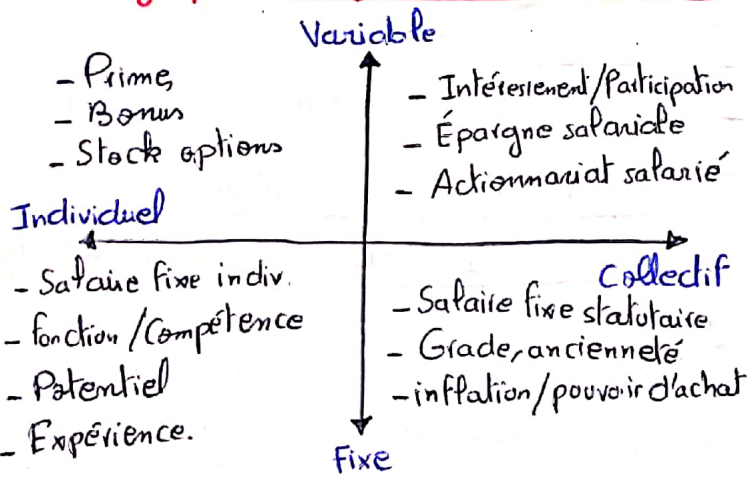 Variable
- Prime,
- Bonus
- Stock options
- Intéressement/Participation
- Épargne salariale
- Actionnariat salarié
Individuel
Collectif
- Salaire fixe indiv.
- fonction/Compétence
- Potentiel
- Expérience.
- Salaire fixe statutaire
- Grade, ancienneté
- inflation/pouvoir d'achat
Fixe